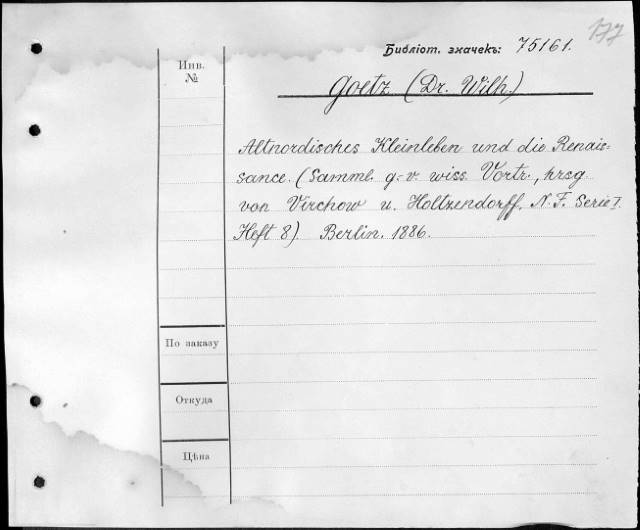 177
Библіот. значекъ: 75161.
Инв.
№
Goetz (Dr. Wilh.)
Altnordisches Kleinleben und die Renais=
sance. (Samml. g.-v. wiss. Vortr., hrsg.
von Virchow u. Holtzendorff. N. F. Serie I.
Heft 8). Berlin. 1886.
По заказу
Откуда
Цѣна